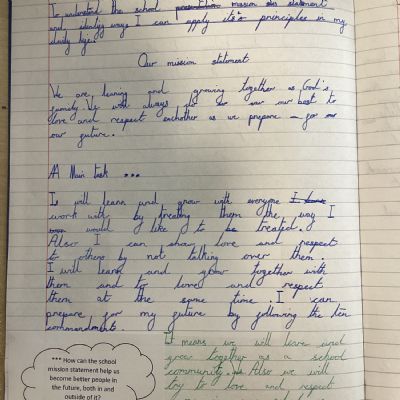 To understand the school presentation mission statement
and identify ways I can apply it's principles in my
daily life.
Our mission statement
We are learning and growing together as God's
family. We will always do our best to
love and respect eachother as we prepare for
our future.
A Main task ...
I will learn and grow with everyone I
work with by treating them the way I
would like to be treated.
Also I can show love and respect
to others by not talking over them.
I will learn and grow together with
them and to love and respect
them at the same time. I can
prepare for my future by following the ten
commandments.
It means we will learn and
grow together as a school
community. Also we will
try to love and respect
*** How can the school
mission statement help us
become better people in
the future, both in and
outside of it?